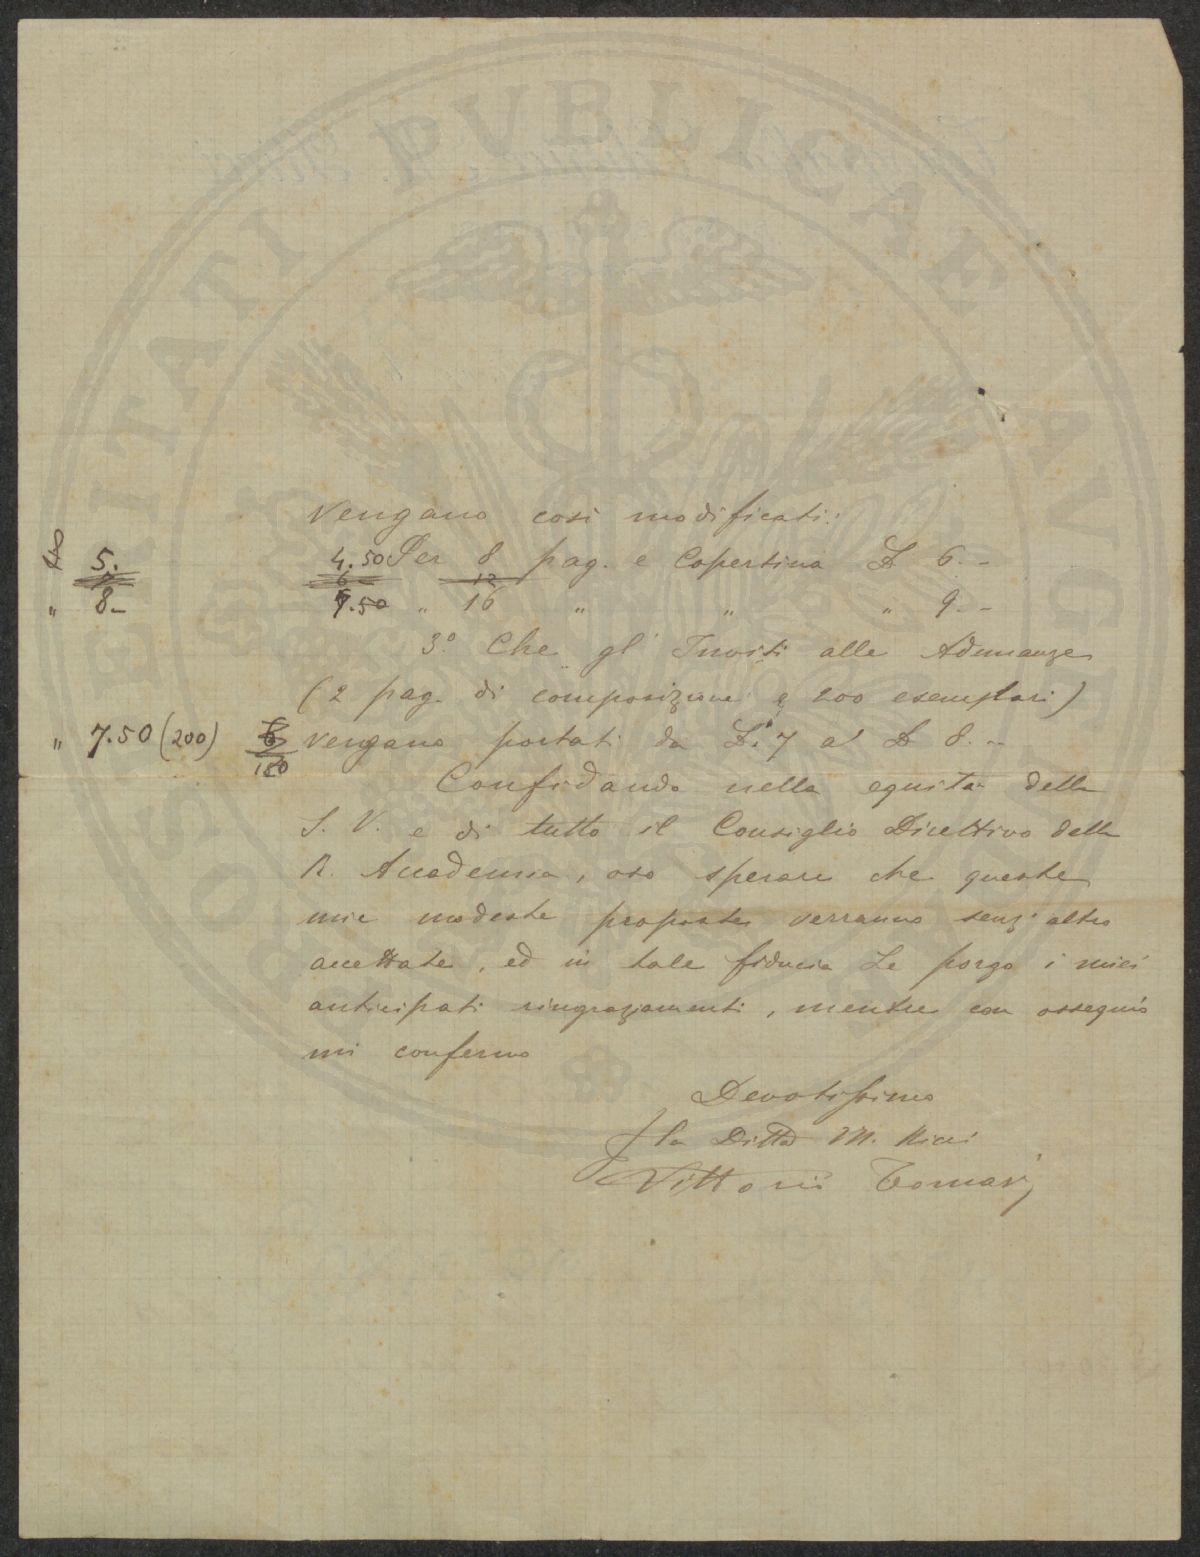 PROSPERITATI PUBLICAE AUGENDAE
vengano così modificati:
5. 4.50 Per 8 pag. e Copertina £ 6.-
" 8- 6 12
7.50 " 16 " " " 9.-
3º Che gl'Inviti alle Adunanze
(2 pag. di composizione e 200 esemplari)
" 7.50 (200) 6 vengano portati da £. 7 a £ 8.-
150
Confidando nella equità della
S. V. e di tutto il Consiglio Direttivo della
R. Accademia, oso sperare che queste
mie modeste proposte verranno senz'altro
accettate, ed in tale fiducia Le porgo i miei
anticipati ringraziamenti, mentre con ossequio
mi confermo
Devotissimo
la Ditta M. Ricci
Vittorio Tomasi